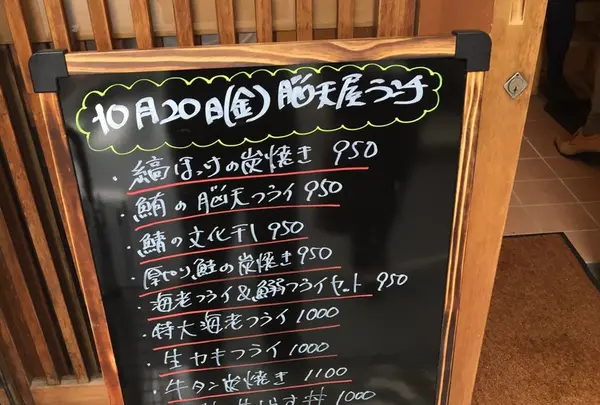 10月20日(金)脳天屋ランチ
・縞ほっけの炭焼き 950
・鮪の脳天フライ 950
・鯖の文化干し 950
・厚切り鮭の炭焼き 950
・海老フライ&鰯フライセット 950
・特大海老フライ 1000
・生カキフライ 1000
・牛タン炭焼き 1100
生しらす丼 1000